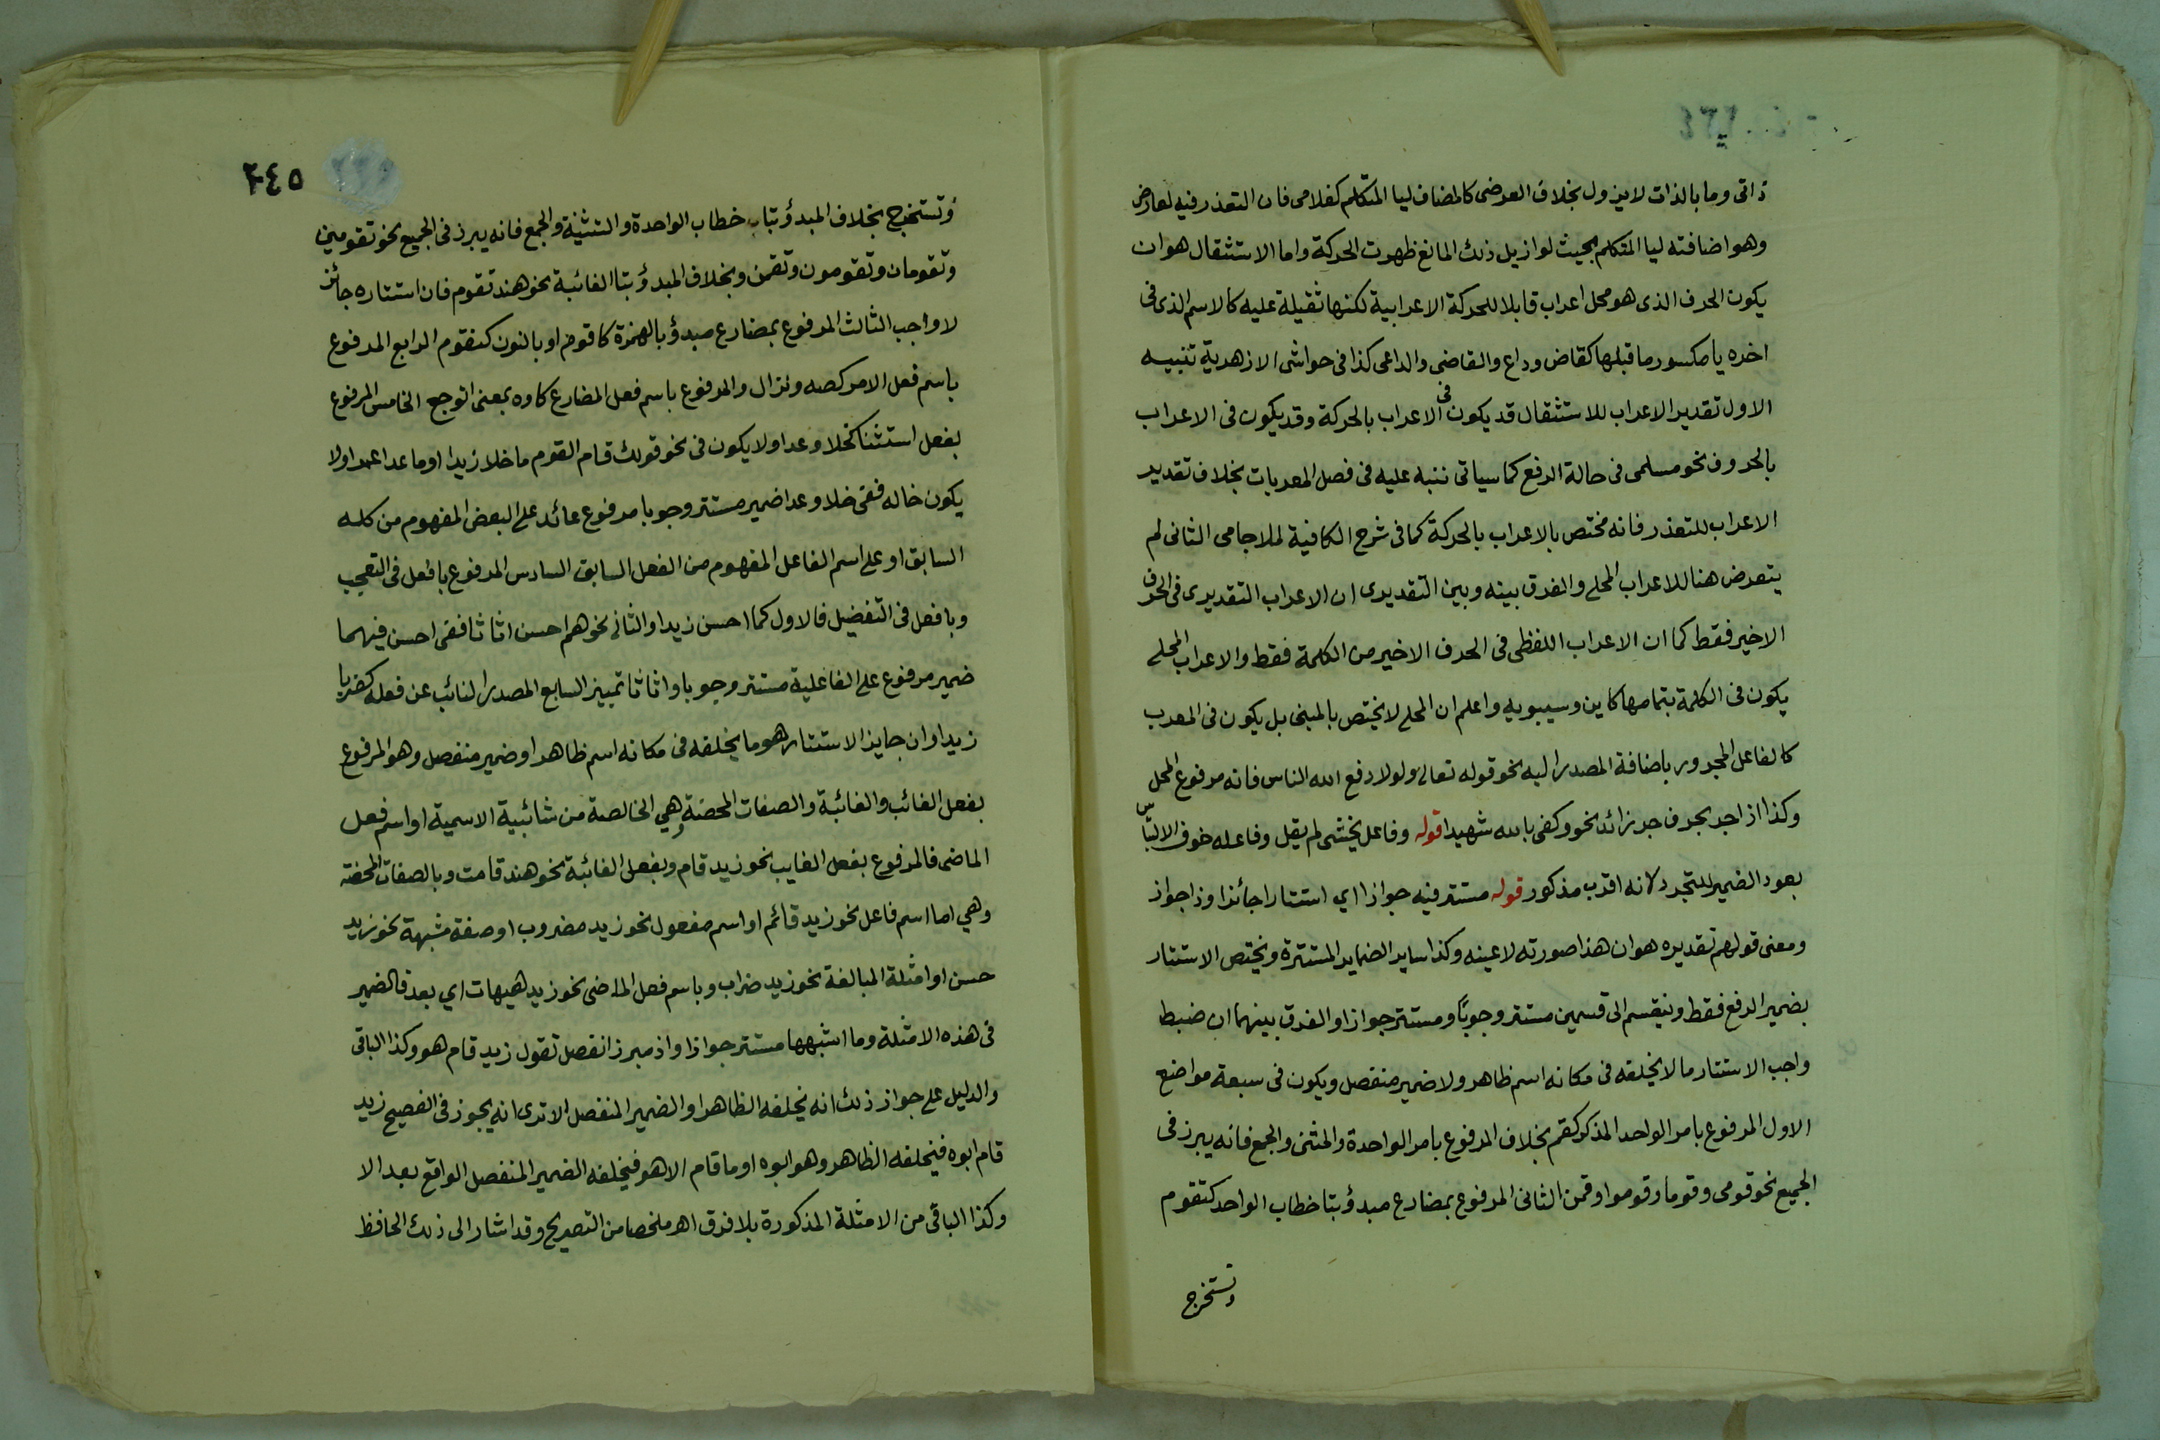 ذاتى وما بالذات لا يزول بخلاف العرضى كالمضاف ليا المتكلم كغلامى فان التعذر فيه لعارض
وهو اضافته ليا المتكلم بحيث لو ازيل ذلك المانع ظهرت الحركة واما الاستثقال هو ان
يكون الحرف الذى هو محل اعراب قابلا للحركة الاعرابية لكنها ثقيلة عليه كالاسم الذى فى
اخره يا مكسور ما قبلها كقاض وداع والقاضى والداعى كذا فى حواشى الازهرية تنبيه
الاول تقدير الاعراب للاستثقال قد يكون فى الاعراب بالحركة وقد يكون فى الاعراب
بالحروف نحو مسلمى فى حالة الرفع كما سياتى ننبه عليه فى فصل المعربات بخلاف تقدير
الاعراب للتعذر فانه مختص بالاعراب بالحركة كما فى شرح الكافية لملا جامى الثانى لم
يتعرض هنا للاعراب المحلے والفرق بينه وبين التقديرى ان الاعراب التقديرى فى الحرف
الاخير فقط كما ان الاعراب اللفظى فى الحرف الاخير من الكلمة فقط والاعراب المحلے
يكون فى الكلمة بتمامها كاين وسيبويه واعلم ان المحلے لا يختص بالمبنى بل يكون فى المعرب
كالفاعل المجرور باضافة المصدر اليه نحو قوله تعالى ولولا دفع الله الناس فانه مرفوع المحل
وكذا اذا جر بحرف جر زائد نحو وكفى بالله شهيدا قوله وفاعل يخشى لم يقل وفاعله خوف الالتباس
بعود الضمير للتجرد لانه اقرب مذكور قوله مستتر فيه جوازا اي استتارا جائزا وذا جواز
ومعنى قولهم تقديره هو ان هذا صورته لا عينه وكذا ساير الضماير المستترة ويختص الاستتار
بضمير الرفع فقط وينقسم الى قسمين مستتر وجوبًا ومستتر جوازا والفرق بينهما ان ضبط
واجب الاستتار ما لا يخلفه فى مكانه اسم ظاهر ولا ضمير منفصل ويكون فى سبعة مواضع
الاول المرفوع بامر الواحد المذكر كقم بخلاف المرفوع بامر الواحدة والمثنى والجمع فانه يبرز فى
الجميع نحو قومى وقوما وقوموا وقمن الثانى المرفوع بمضارع مبدؤ بتا خطاب الواحد كتقوم
وتستخرج
٢٤٥
وتستخرج بخلاف المبدؤ بتاب خطاب الواحدة والتثنية والجمع فانه يبرز فى الجميع نحو تقومين
وتقومان وتقومون وتقمن وبخلاف المبدؤ بتا الغائبة نحو هند تقوم فان استتاره جائز
لا واجب الثالث المرفوع بمضارع مبدؤ بالهمزة كاقوم او بالنون كنقوم الرابع المرفوع
باسم فعل الامر كصه ونزال والمرفوع باسم فعل المضارع كاوه بمعنى اتوجع الخامس المرفوع
بفعل استثنا كخلا وعدا ولا يكون فى نحو قولك قام القوم ما خلا زيدا او ما عدا عمرا ولا
يكون خاله ففى خلا وعدا ضمير مستتر وجوبا مرفوع عائد على البعض المفهوم من كله
السابق او على اسم الفاعل المفهوم من الفعل السابق السادس المرفوع بافعل فى التعجب
وبافعل فى التفضيل فالاول كما احسن زيدا والثانى نحو هم احسن اثاثا ففى احسن فيهما
ضمير مرفوع على الفاعلية مستتر وجوبا واثاثا تمييز السابع المصدر النائب عن فعله كضربا
زيدا وان جايز الاستتار هو ما يخلفه فى مكانه اسم ظاهر او ضمير منفصل وهو المرفوع
بفعل الغائب والغائبة والصفات المحضة وهي الخالصة من شائبية الاسمية او اسم فعل
الماضى فالمرفوع بفعل الغايب نحو زيد قام وبفعل الغائبة نحو هند قامت وبالصفات المحضة
وهي اما اسم فاعل نحو زيد قائم او اسم مفعول نحو زيد مضروب او صفة مشبهة نحو زيد
حسن او امثلة المبالغة نحو زيد ضراب وباسم فعل الماضى نحو زيد هيهات اي بعد فالضمير
فى هذه الامثلة وما اشبهها مستتر جوازا واذ مبرز انفصل تقول زيد قام هو وكذا الباقى
والدليل على جواز ذلك انه يخلفه الظاهر او الضمير المنفصل الا ترى انه يجوز فى الفصيح زيد
قام ابوه فيخلفه الظاهر وهو ابوه او ما قام الا هو فيخلفه الضمير المنفصل الواقع بعد الا
وكذا الباقى من الامثلة المذكورة بلا فرق اهـ ملخصا من التصريح وقد اشار الى ذلك الحافظ